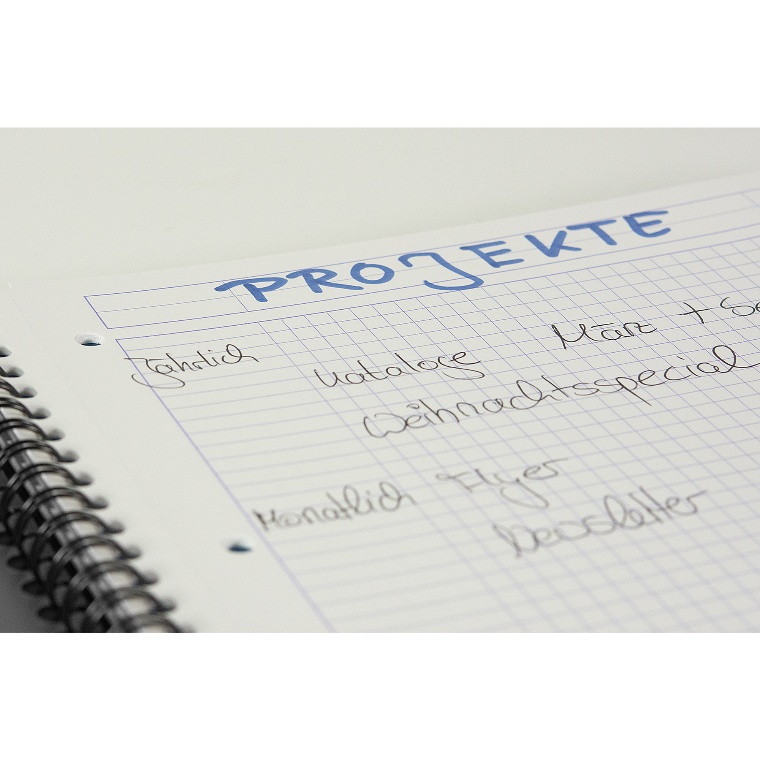 PROJEKTE
Jährlich Kataloge März + Se
Weihnachtsspecial
Monatlich Flyer
Newsletter